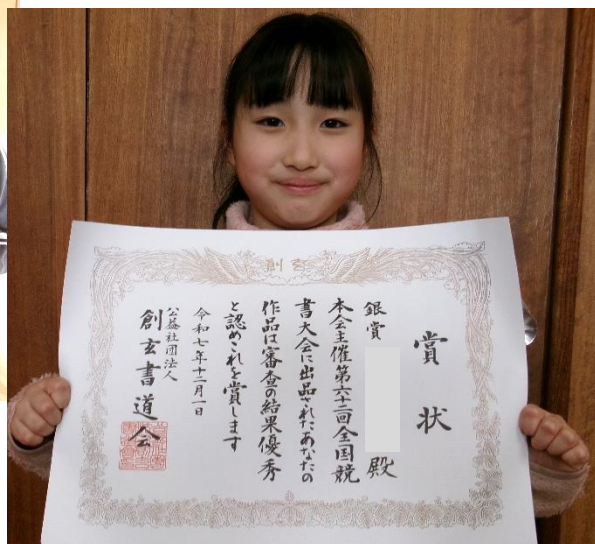 創玄
賞状
銀賞
殿
本会主催第六十二回全国競
書大会に出品されたあなたの
作品は審査の結果優秀
と認めこれを賞します
令和七年十二月一日
公益社団法人
創玄書道会